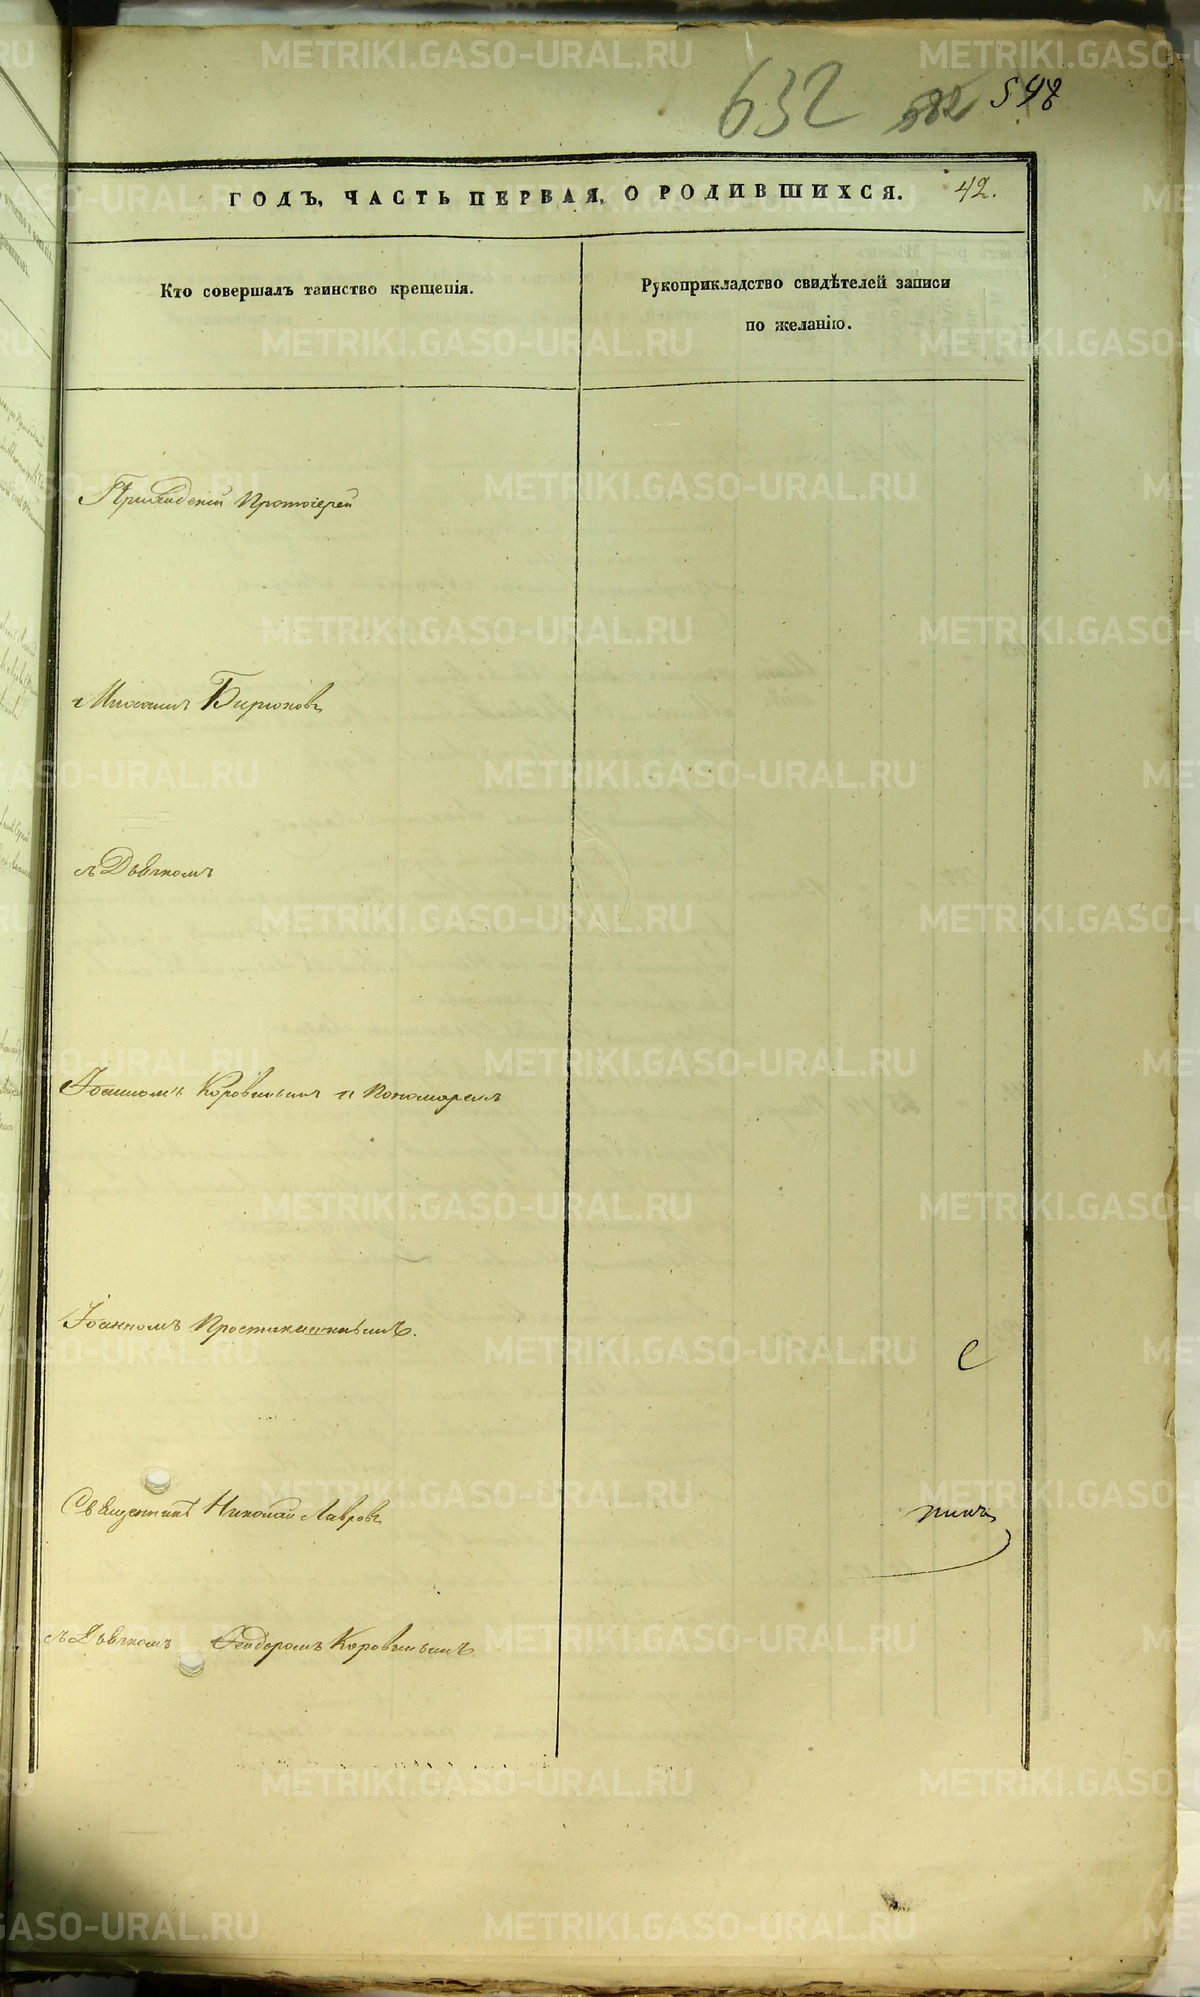 632 582 548
ГОДЪ, ЧАСТЬ ПЕРВАЯ, О РОДИВШИХСЯ. 42.
Кто совершалъ таинство крещенія.
Рукоприкладство свидѣтелей записи
по желанію.
Приходскій Протоіерей
Михаилъ Бирюковъ
съ Дьячкомъ
Іоанномъ Коровинымъ и Пономаремъ
Іоанномъ Простинскимъ.
С
Священникъ Николай Лавровъ
съ Дьячкомъ Ѳеодоромъ Коровинымъ
METRIKI.GASO-URAL.RU